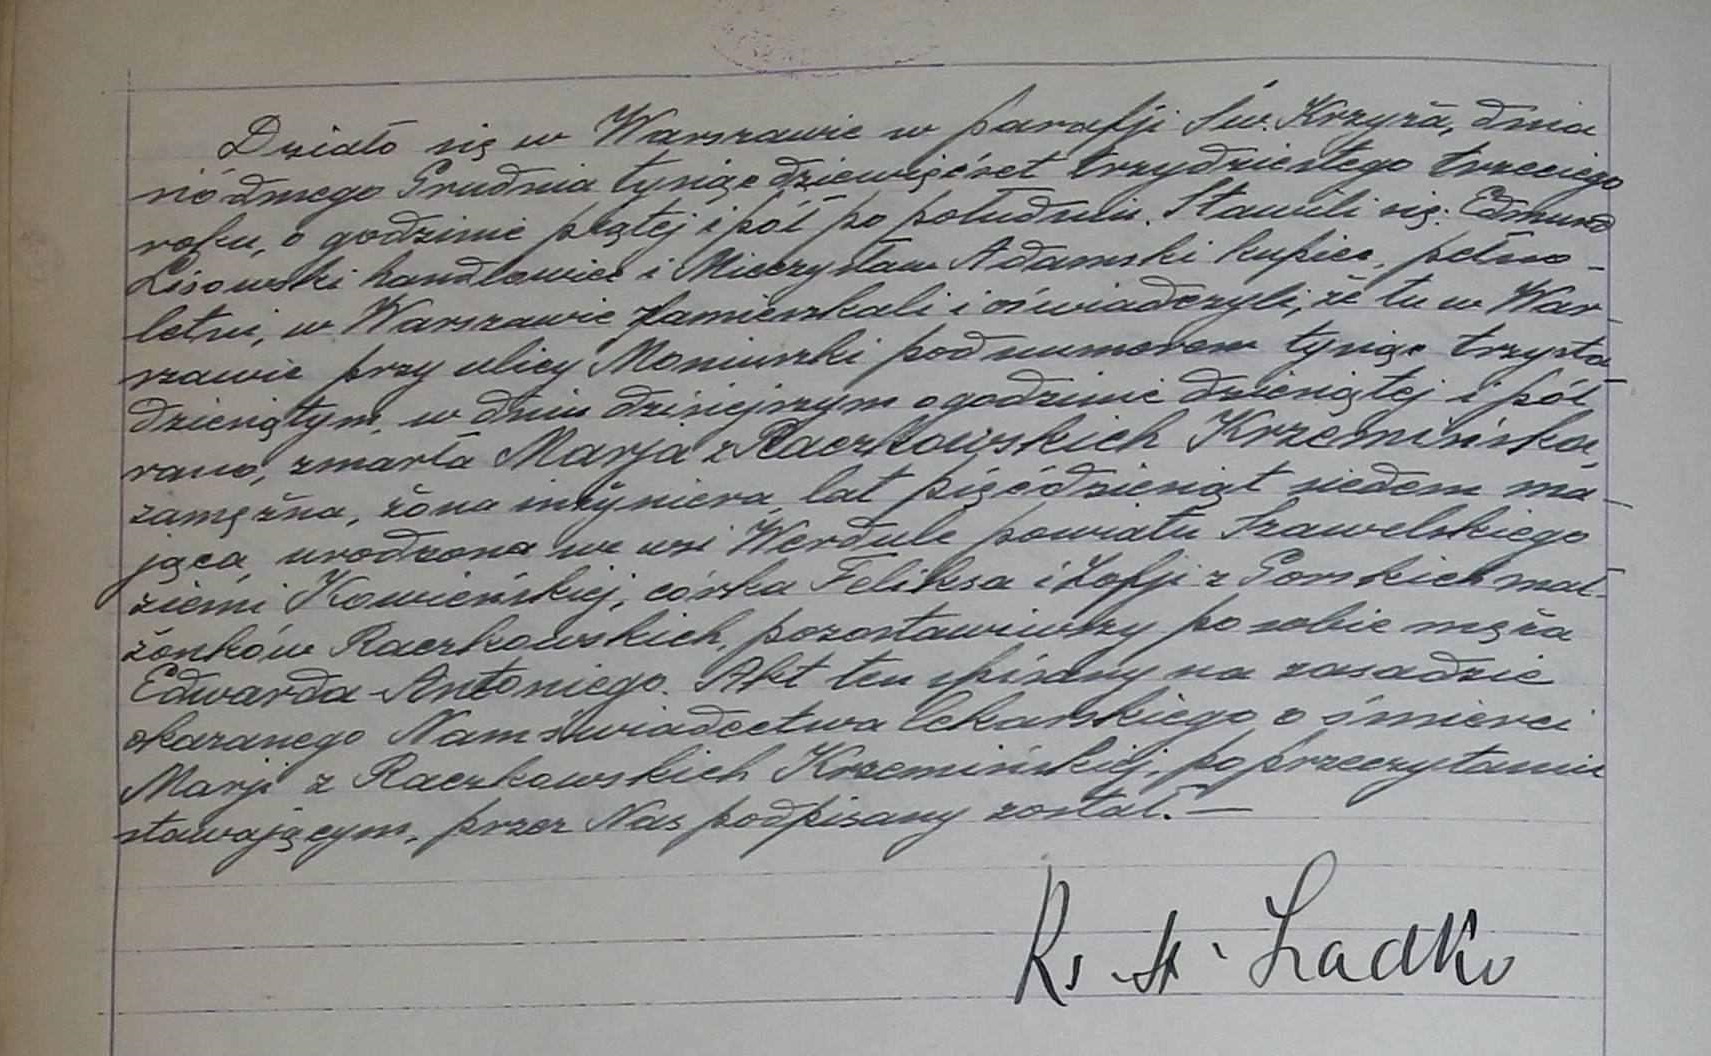 Działo się w Warszawie w parafji Św. Krzyża, dnia
siódmego Grudnia tysiąc dziewięćset trzydziestego trzeciego
roku, o godzinie piątej i pół po południu. Stawili się: Edmund
Lisowski handlowiec i Mieczysław Adamski kupiec, pełno-
letni, w Warszawie zamieszkali i oświadczyli, że tu w War-
szawie przy ulicy Moniuszki pod numerem tysiąc trzysta
dziesiątym, w dniu dzisiejszym o godzinie dziesiątej i pół
rano, zmarła Marja z Raczkowskich Krzemińska,
zamężna, żona inżyniera, lat pięćdziesiąt siedem ma-
jąca, urodzona we wsi Werdule powiatu Szawelskiego
ziemi Kowieńskiej, córka Feliksa i Zofji z Gorskich mał-
żonków Raczkowskich, pozostawiwszy po sobie męża
Edwarda-Antoniego. Akt ten spisany na zasadzie
okazanego Nam świadectwa lekarskiego o śmierci
Marji z Raczkowskich Krzemińskiej, po przeczytaniu
stawającym, przez Nas podpisany został.—
Ks. St.